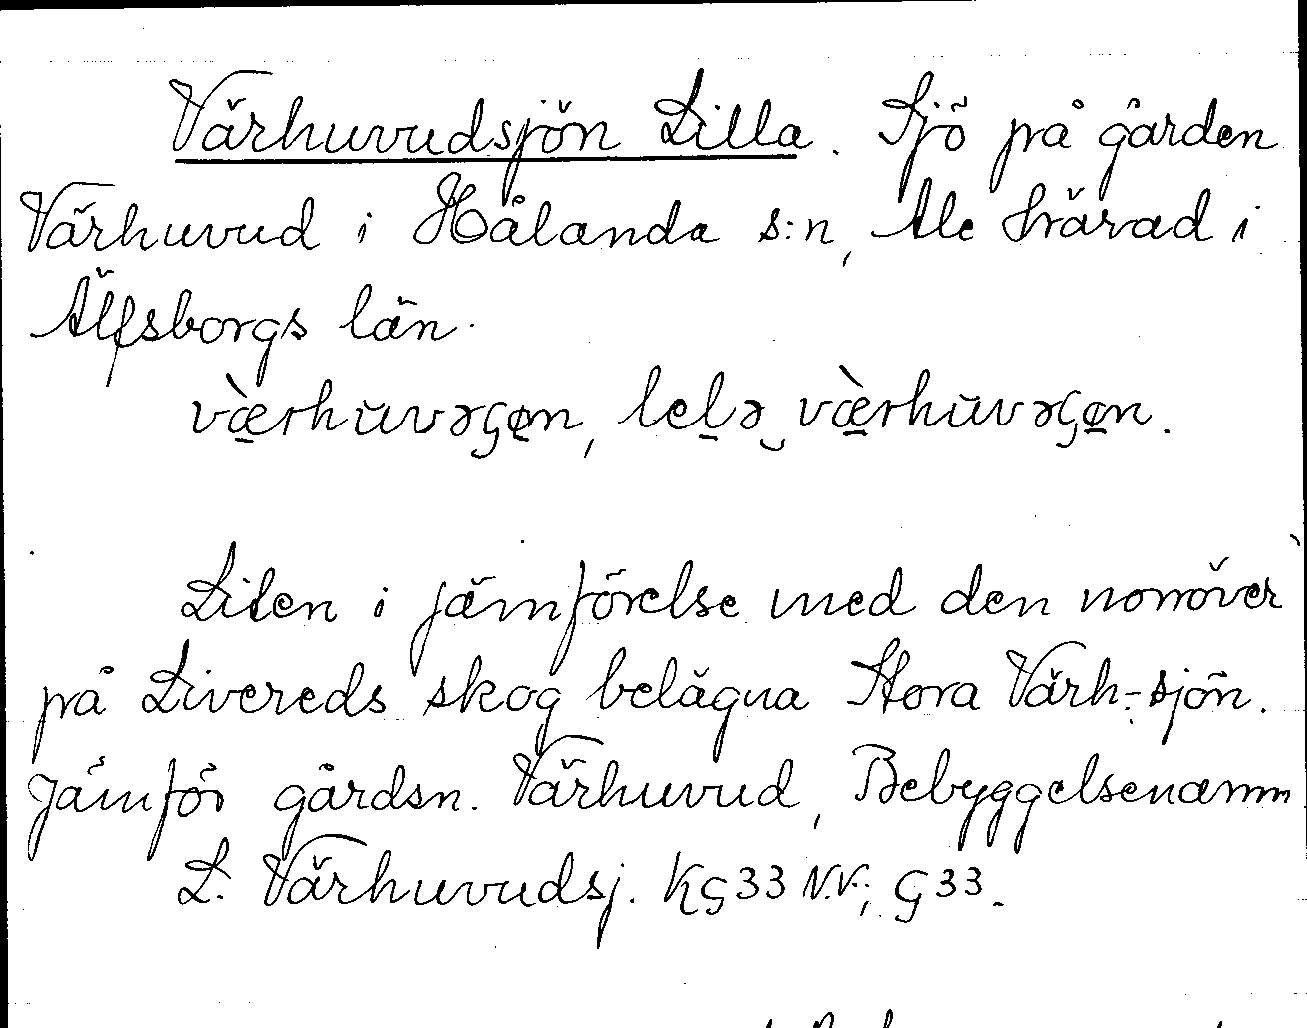 Värhuvudsjön Lilla. Sjö på gården
Värhuvud i Hålanda s:n, Ale härad i
Älfsborgs län.
væ̀rhuvəɕøn, lelə‿væ̀rhuvəɕøn.
Liten i jämförelse med den norröver
på Livereds skog belägna Stora Värh:-sjön.
Jämför gårdsn. Värhuvud, Bebyggelsenamn
L. Värhuvudsj. KG33 N.V.; G33.